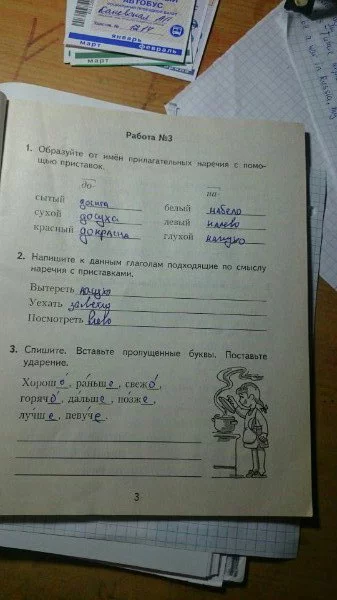 АВТОБУС
Каневская
январь
март февраль
март
Работа №3
1. Образуйте от имён прилагательных наречия с помо-
щью приставок.
до- на-
сытый досыта белый набело
сухой досуха левый налево
красный докрасна глухой наглухо
2. Напишите к данным глаголам подходящие по смыслу
наречия с приставками.
Вытереть
Уехать
Посмотреть влево
3. Спишите. Вставьте пропущенные буквы. Поставьте
ударение.
Хорошо́, ра́ньше, свежо́,
горячо́, дальше, по́зже,
лу́чше, певу́че.
3